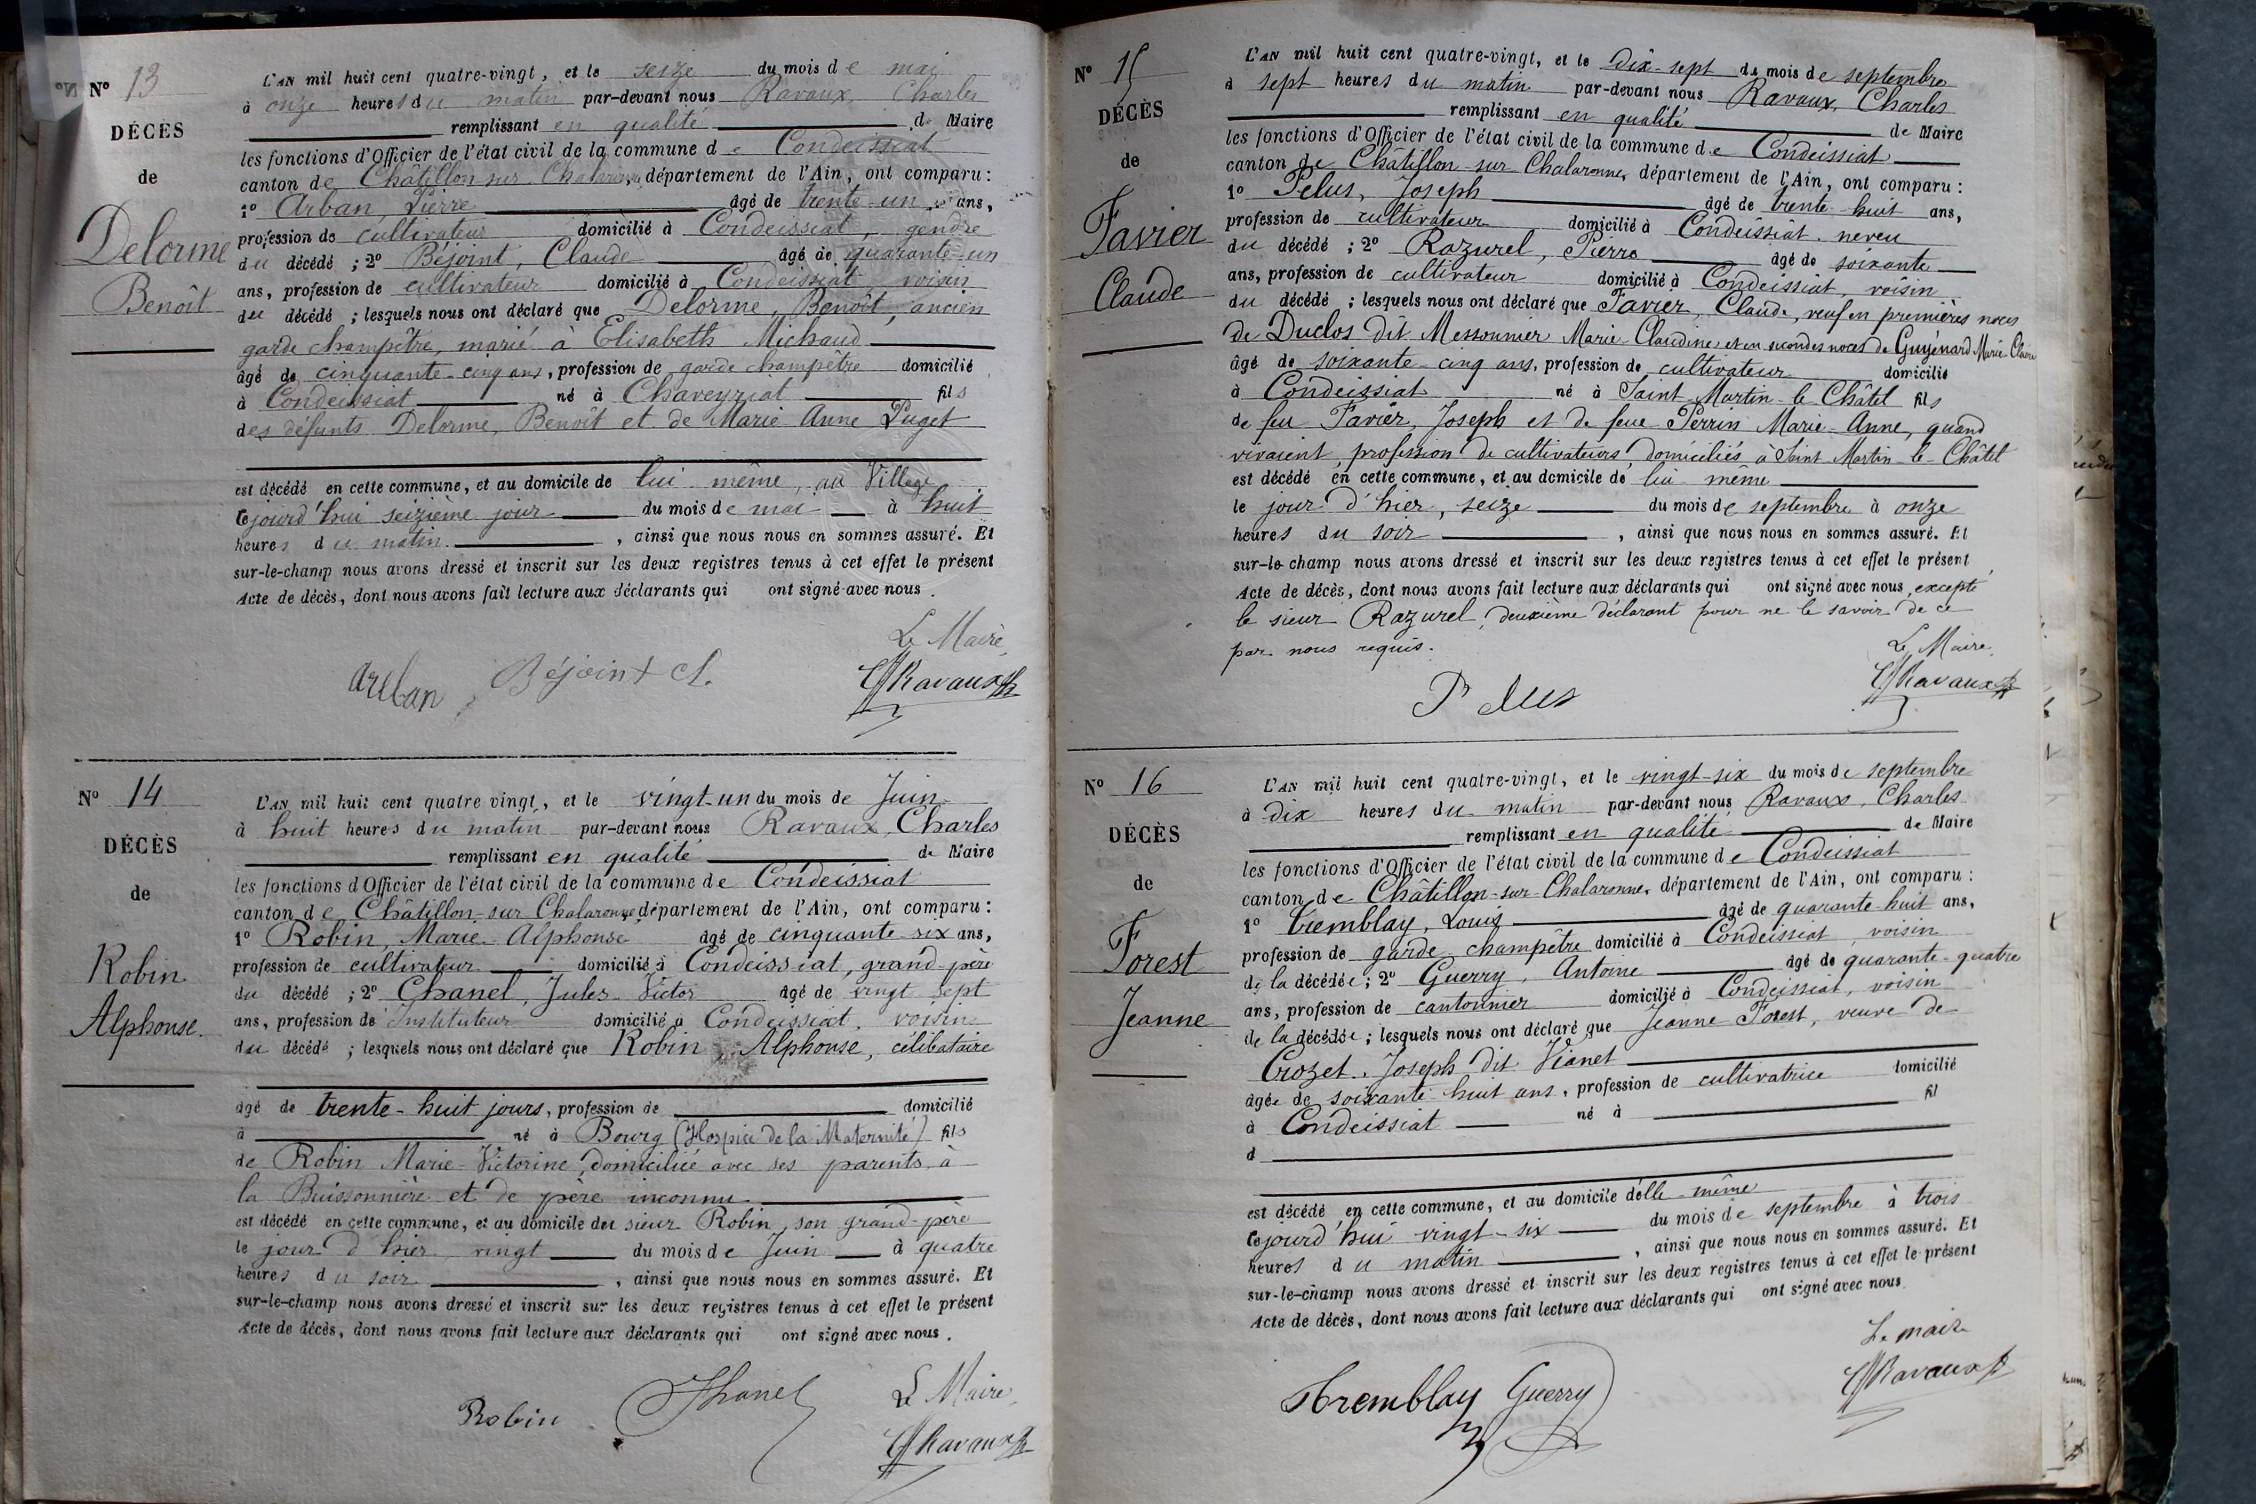 N° 13
DÉCÈS
de
Delorme
Benoît
L'AN mil huit cent quatre-vingt, et le seize du mois de mai
à onze heures du matin par-devant nous Ravaux, Charles
remplissant en qualité de Maire
les fonctions d'Officier de l'état civil de la commune de Condeissiat
canton de Châtillon-sur-Chalaronne, département de l'Ain, ont comparu :
1° Arban, Pierre âgé de trente-un ans,
profession de cultivateur domicilié à Condeissiat, gendre
du décédé ; 2° Béjoint, Claude âgé de quarante-un
ans, profession de cultivateur domicilié à Condeissiat, voisin
du décédé ; lesquels nous ont déclaré que Delorme, Benoît, ancien
garde champêtre, marié à Elisabeth Michaud
âgé de cinquante-cinq ans, profession de garde champêtre domicilié
à Condeissiat né à Chaveyriat fils
des défunts Delorme, Benoît et de Marie Anne Puget
est décédé en cette commune, et au domicile de lui même, au Village
cejourd'hui seizième jour du mois de mai à huit
heures du matin. , ainsi que nous nous en sommes assuré. Et
sur-le-champ nous avons dressé et inscrit sur les deux registres tenus à cet effet le présent
Acte de décès, dont nous avons fait lecture aux déclarants qui ont signé avec nous.
Le Maire,
Arban Béjoint Cl. Ravaux
N° 14
DÉCÈS
de
Robin
Alphonse.
L'AN mil huit cent quatre vingt, et le vingt-un du mois de Juin
à huit heures du matin par-devant nous Ravaux, Charles
remplissant en qualité de Maire
les fonctions d'Officier de l'état civil de la commune de Condeissiat
canton de Châtillon-sur-Chalaronne département de l'Ain, ont comparu :
1° Robin, Marie-Alphonse âgé de cinquante-six ans,
profession de cultivateur domicilié à Condeissiat, grand-père
du décédé ; 2° Chanel, Jules-Victor âgé de vingt sept
ans, profession de Instituteur domicilié à Condeissiat, voisin
du décédé ; lesquels nous ont déclaré que Robin, Alphonse, célibataire
âgé de trente-huit jours, profession de domicilié
à né à Bourg (Hospice de la Maternité) fils
de Robin Marie-Victorine, domiciliée avec ses parents à
la Buissonnière et de père inconnu
est décédé en cette commune, et au domicile du sieur Robin, son grand-père
le jour d'hier vingt du mois de Juin à quatre
heures du soir , ainsi que nous nous en sommes assuré. Et
sur-le-champ nous avons dressé et inscrit sur les deux registres tenus à cet effet le présent
Acte de décès, dont nous avons fait lecture aux déclarants qui ont signé avec nous.
Le Maire,
Robin JChanel Ravaux
N° 15
DÉCÈS
de
Favier
Claude
L'AN mil huit cent quatre-vingt, et le dix-sept du mois de septembre
à sept heures du matin par-devant nous Ravaux, Charles
remplissant en qualité de Maire
les fonctions d'Officier de l'état civil de la commune de Condeissiat
canton de Châtillon-sur-Chalaronne, département de l'Ain, ont comparu :
1° Pelus, Joseph âgé de trente-huit ans,
profession de cultivateur domicilié à Condeissiat. neveu
du décédé ; 2° Razurel, Pierre âgé de soixante
ans, profession de cultivateur domicilié à Condeissiat, voisin
du décédé ; lesquels nous ont déclaré que Favier, Claude, veuf en premières noces
de Duclos dit Messonnier Marie-Claudine et en secondes noces de Guyénard Marie-Claire
âgé de soixante-cinq ans, profession de cultivateur domicilié
à Condeissiat né à Saint-Martin-le-Châtel fils
de feu Favier, Joseph et de feue Perrin Marie-Anne, quand
vivaient, profession de cultivateurs domiciliés à Saint-Martin-le-Châtel
est décédé en cette commune, et au domicile de lui-même
le jour d'hier, seize du mois de septembre à onze
heures du soir , ainsi que nous nous en sommes assuré. Et
sur-le-champ nous avons dressé et inscrit sur les deux registres tenus à cet effet le présent
Acte de décès, dont nous avons fait lecture aux déclarants qui ont signé avec nous, excepté
le sieur Razurel, deuxième déclarant pour ne le savoir de ce
par nous requis.
Le Maire,
Pelus Ravaux
N° 16
DÉCÈS
de
Forest
Jeanne
L'AN mil huit cent quatre-vingt, et le vingt-six du mois de septembre
à dix heures du matin par-devant nous Ravaux, Charles
remplissant en qualité de Maire
les fonctions d'Officier de l'état civil de la commune de Condeissiat
canton de Châtillon-sur-Chalaronne, département de l'Ain, ont comparu :
1° Tremblay, Louis âgé de quarante-huit ans,
profession de garde champêtre domicilié à Condeissiat, voisin
de la décédée ; 2° Guerry, Antoine âgé de quarante-quatre
ans, profession de cantonnier domicilié à Condeissiat, voisin
de la décédée ; lesquels nous ont déclaré que Jeanne Forest, veuve de
Crozet. Joseph dit Vianet
âgée de soixante-huit ans, profession de cultivatrice domicilié
à Condeissiat né à fil
d
est décédé en cette commune, et au domicile d'elle-même
cejourd'hui vingt-six du mois de septembre à trois
heures du matin , ainsi que nous nous en sommes assuré. Et
sur-le-champ nous avons dressé et inscrit sur les deux registres tenus à cet effet le présent
Acte de décès, dont nous avons fait lecture aux déclarants qui ont signé avec nous
Le maire
Tremblay Guerry Ravaux